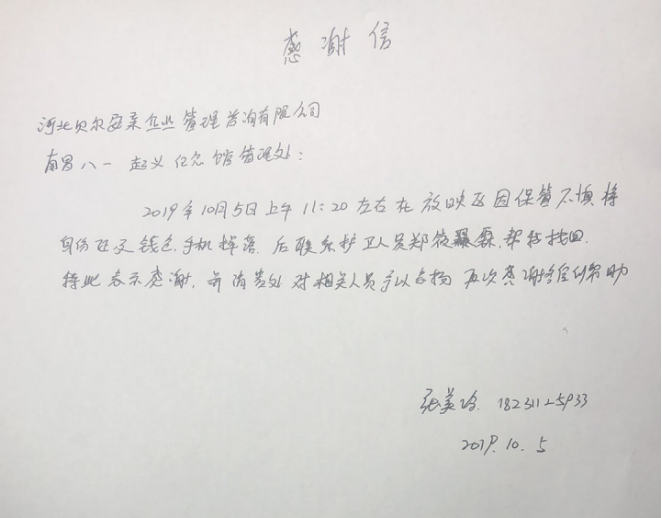 感谢信
河北贝尔安亲企业管理咨询有限公司
南昌八一起义纪念馆管理处：
2019年10月5日上午11:20左右在放映区因保管不慎将
身份证及钱包、手机掉落，后联系护卫人员郑筱霖，帮忙找回.
特此表示感谢，并请贵处对相关人员予以表扬 再次感谢给予帮助
张美玲 18231125933
2019.10.5